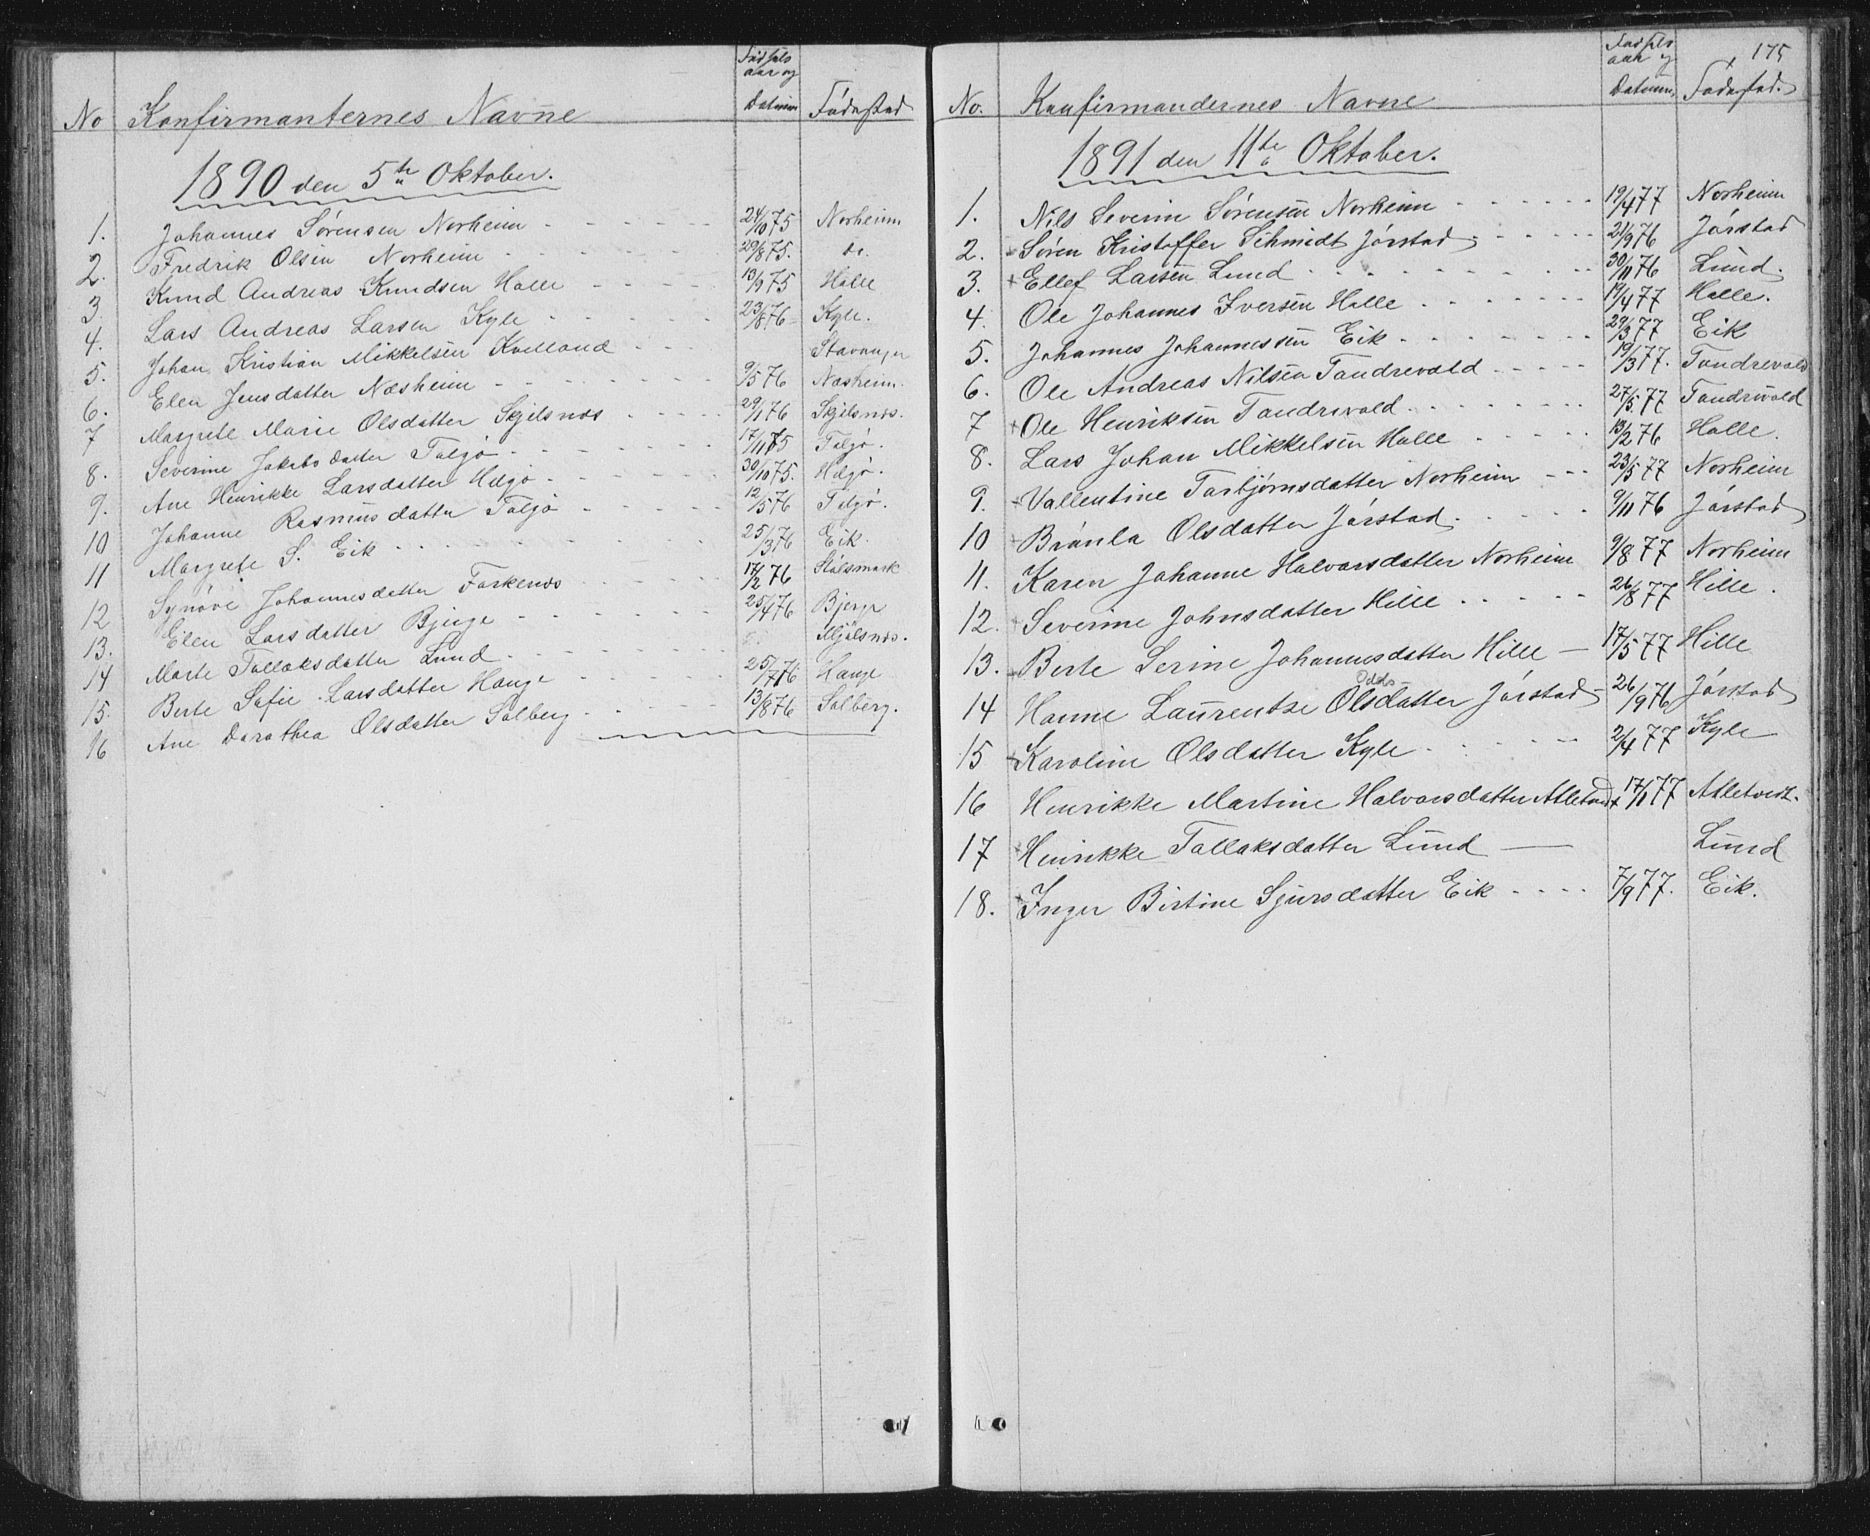 No Konfirmanternes Navne Fødsels aar og Datum Fødested
1890 den 5te Oktober.
1. Johannes Sørensen Norheim 24/10 75 Norheim
2. Fredrik Olsen Norheim 29/8 75. do.
3. Knud Andreas Knudsen Halle 13/9 75 Halle
4. Lars Andreas Larsen Kyle 23/8 76 Kyle.
5. Johan Kristian Mikkelsen Kvelland Stavanger
6. Elen Jensdatter Næsheim 9/5 76 Næsheim.
7 Margrete Marie Olsdatter Skjelsnæs 29/1 76 Skjelsnæs.
8. Severine Jakobsdatter Talgø 17/11 75 Talgø.
9. Ane Henrikke Larsdatter Helgø 30/10 75. Helgø.
10 Johanne Rasmusdatter Talgø 12/5 76 Talgø.
11 Margrete S. Eik 25/3 76 Eik.
12 Synøve Johannesdatter Farkenæs 17/2 76 Stålsmark
13. Elen Larsdatter Bjerge 25/4 76 Bjerge
14 Marte Tallaksdatter Lund Mjølsnæs.
15. Berte Sofie Larsdatter Hauge 25/7 76 Hauge
16 Ane Dorothea Olsdatter Solberg 13/8 76 Solberg.
175
No. Konfirmandernes Navne Fødsels aar og Datum, Fødested.
1891 den 11te Oktober.
1. Nils Severin Sørensen Norheim 19/4 77 Norheim
2. Søren Kristoffer Schmidt Jørstad 21/9 76 Jørstad
3. + Ellef Larsen Lund 30/11 76 Lund.
4. Ole Johannes Iversen Halle 19/4 77 Halle.
5. Johannes Johannessen Eik 29/3 77 Eik
6. Ole Andreas Nilsen Tandrevald 19/3 77. Tandrevald
7 + Ole Henriksen Tandrevald 27/5 77 Tandrevald
8. Lars Johan Mikkelsen Halle 13/2 76 Halle.
9. Vallentine Torbjørnsdatter Norheim 23/5 77 Norheim
10 Brønla Olsdatter Jørstad 9/11 76 Jørstad
11. Karen Johanne Halvorsdatter Norheim 9/8 77 Norheim
12. Severine Johnsdatter Hille 26/8 77 Hille.
13. Berte Serine Johannesdatter Hille 17/5 77 Hille
14 Hanne Laurentze Olsdatter Jørstad 26/9 76 Jørstad
15 Karoline Olsdatter Kyle 2/4 77 Kyle
16 Henrikke Martine Halvorsdatter 17/1 77
17 + Henrikke Tallaksdatter Lund Lund
18. + Inger Birtine Sjursdatter Eik 7/9 77. Eik.